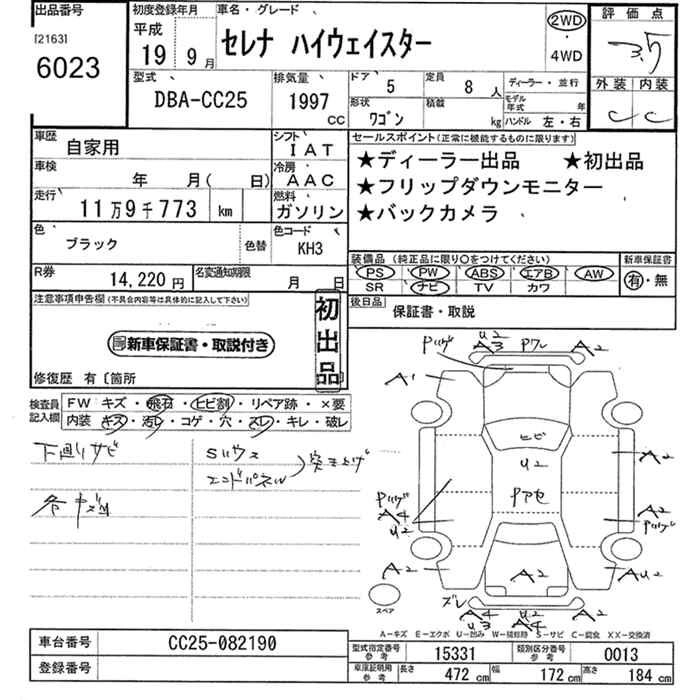 出品番号 初度登録年月 車名・グレード 評価点
[2163] 平成 2WD
6023 19 9月 セレナ ハイウェイスター ・ 3.5
4WD
型式 排気量 ドア 5 定員 8 人 ディーラー・並行 外装 内装
DBA-CC25 1997 cc 形状 ワゴン 積載 kg モデル年式 年 C C
ハンドル 左・右
車歴 自家用 シフト IAT セールスポイント(正常に機能するものに限ります)
車検 年 月( 日) 冷房 AAC ★ディーラー出品 ★初出品
走行 11万9千773 km 燃料 ガソリン ★フリップダウンモニター
★バックカメラ
色 ブラック 色替 色コード KH3
装備品(純正品に限り○をつけてください) 新車保証書
R券 14,220円 名変通知期限 月 日 PS PW ABS エアB AW 有・無
SR ナビ TV カワ
注意事項申告欄(不具合内容等は具体的に記入して下さい) 初出品 後日品 保証書・取説
新車保証書・取説付き
修復歴 有〔箇所
検査員記入欄 FW キズ・飛石・ヒビ割・リペア跡・×要
内装 キズ・汚レ・コゲ・穴・スレ・キレ・破レ
下廻りサビ Sハウス
エンドパネル 突き上げ
各キズ凹
U2
Pハゲ A3 Pワレ A2
A1
ヒビ
U2 A2
Pハゲ Pアセ
A4 A2
U2 Pハゲ
A2 A2 AU2
スペア ズレ A4 U2 A2
U3 A4
A-キズ E-エクボ U-凹み W-補修跡 S-サビ C-腐食 XX-交換済
車台番号 CC25-082190 型式指定番号 参考 15331 類別区分番号 参考 0013
登録番号 車庫証明用 参考 長さ 472 cm 幅 172 cm 高さ 184 cm